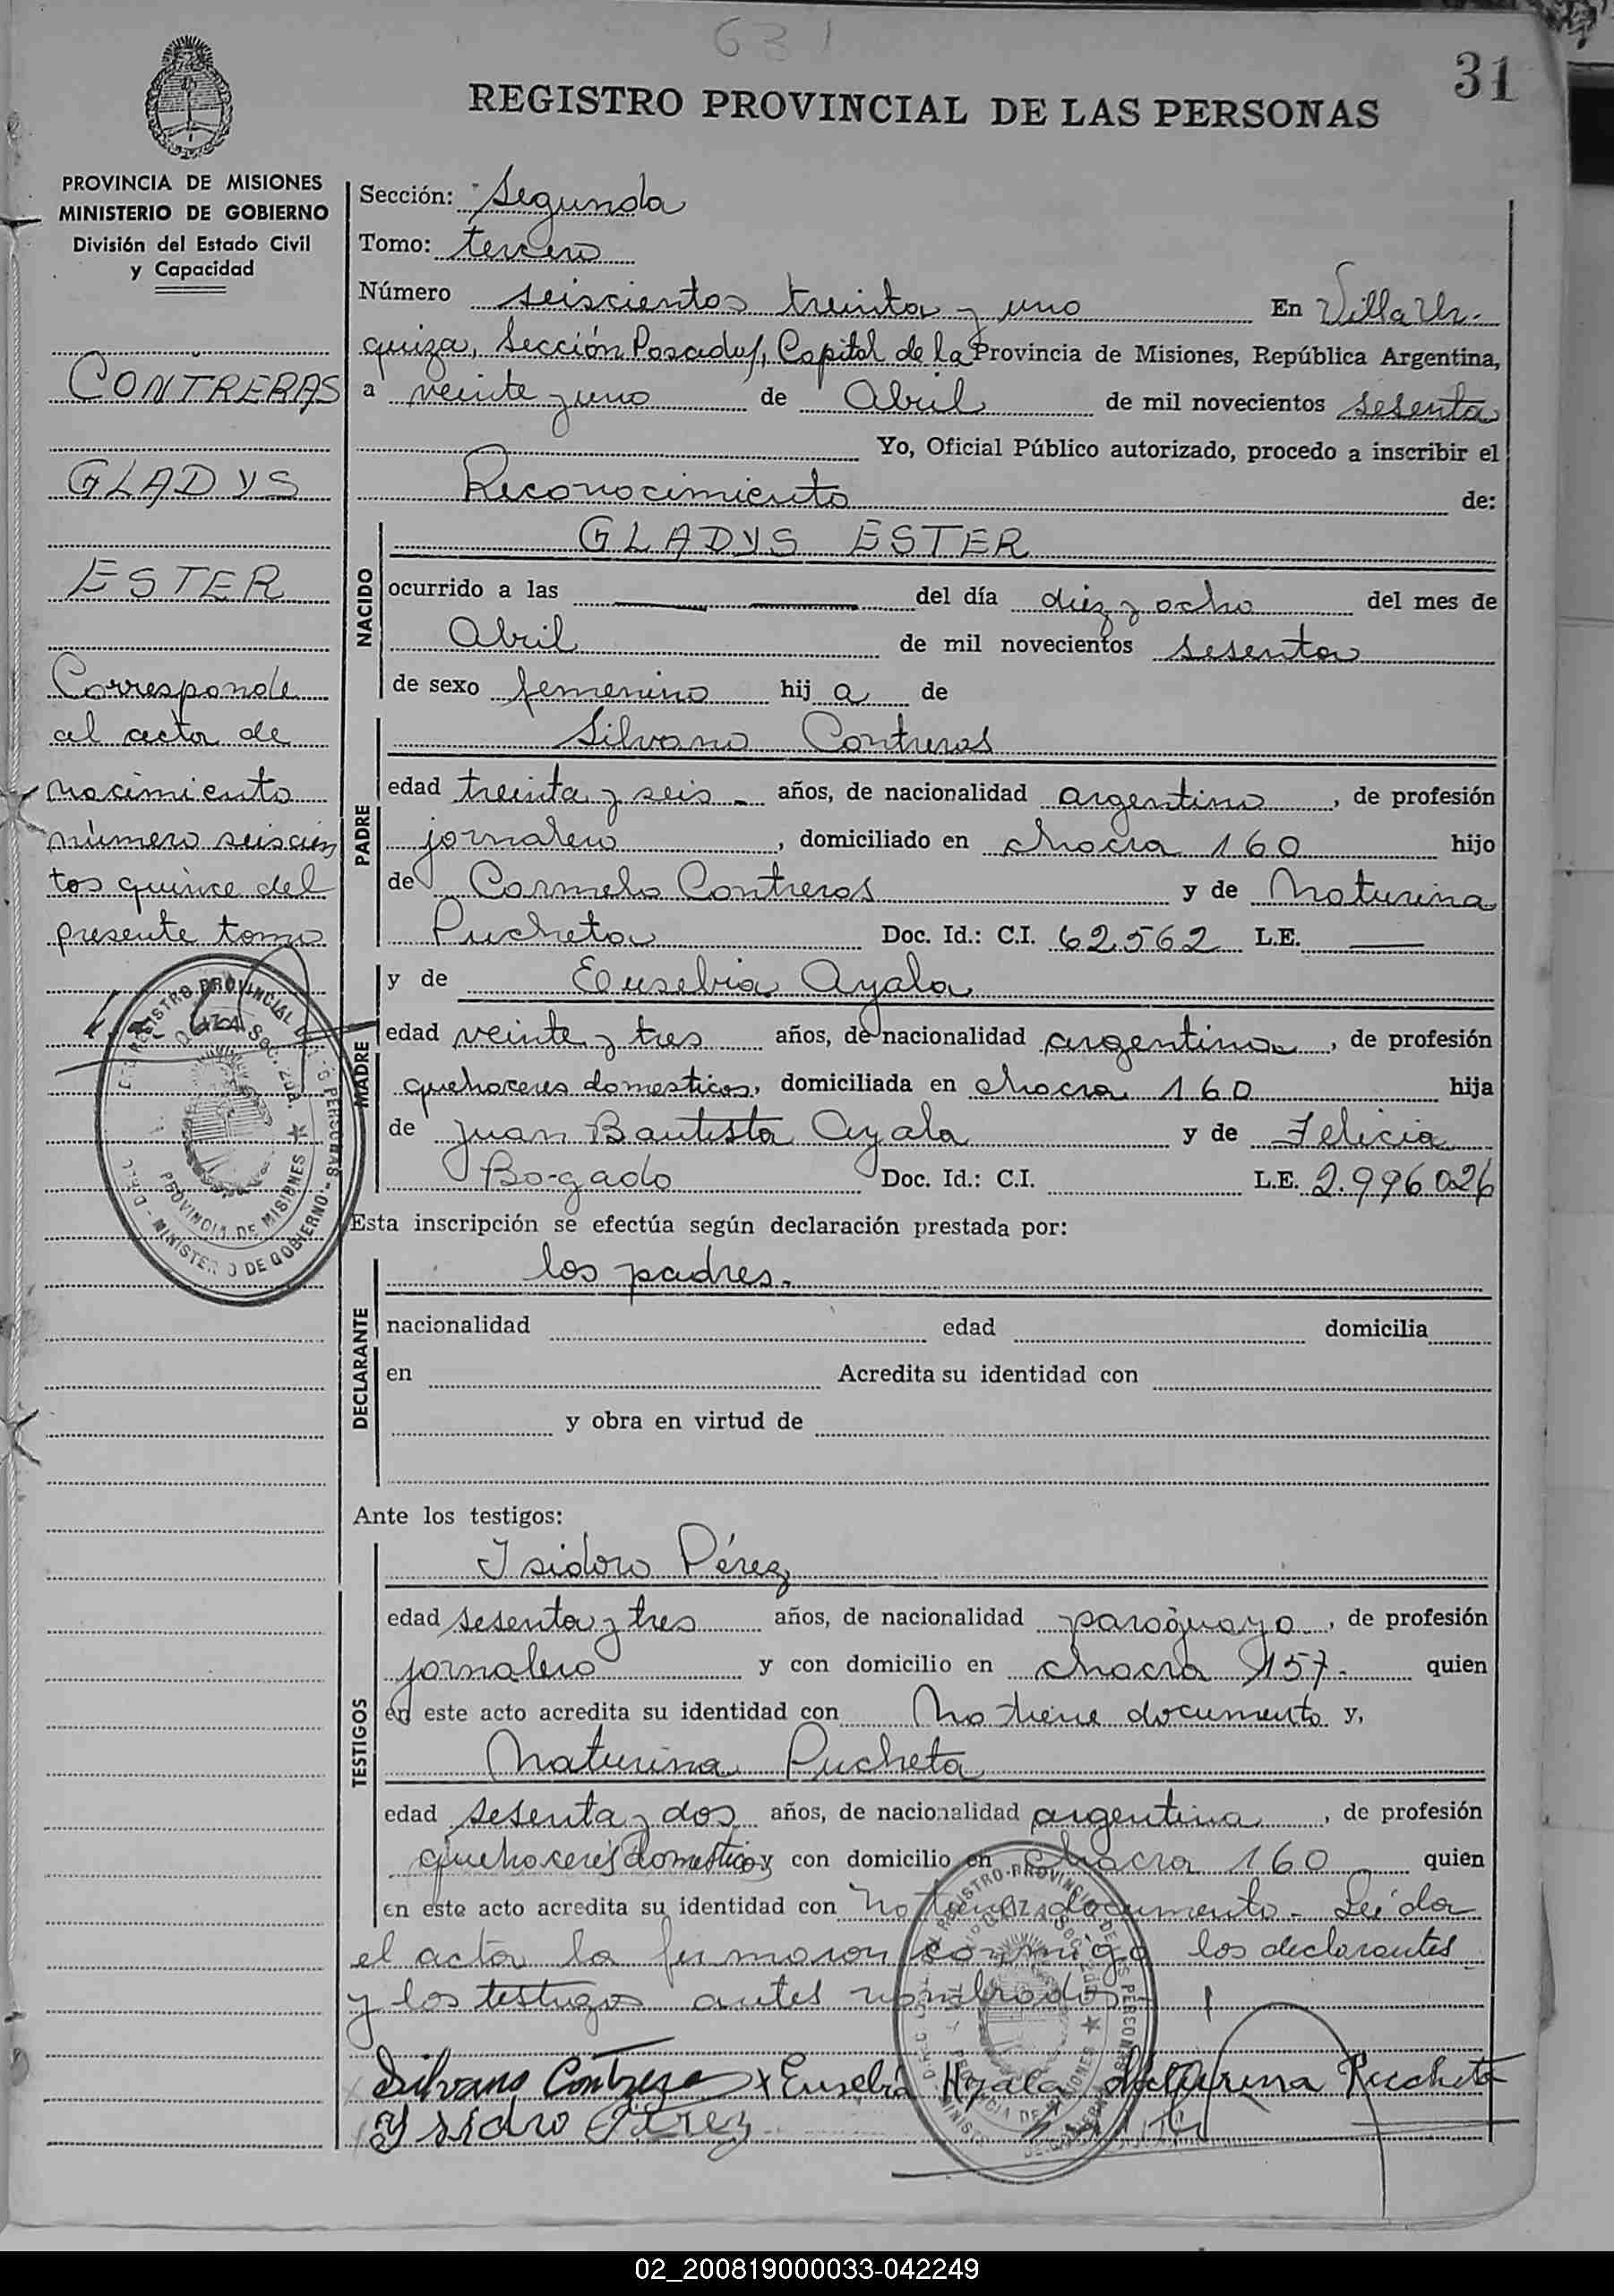 631
31
REGISTRO PROVINCIAL DE LAS PERSONAS
PROVINCIA DE MISIONES
MINISTERIO DE GOBIERNO
División del Estado Civil
y Capacidad
CONTRERAS
GLADYS
ESTER
Corresponde
al acta de
nacimiento
número seiscien
tos quince del
presente tomo
Sección: Segunda
Tomo: tercero
Número seiscientos treinta y uno En Villa Ur-
quiza, Sección Posadas, Capital de la Provincia de Misiones, República Argentina,
a veinte y uno de Abril de mil novecientos sesenta
Yo, Oficial Público autorizado, procedo a inscribir el
Reconocimiento de:
NACIDO
GLADYS ESTER
ocurrido a las del día diez y ocho del mes de
Abril de mil novecientos sesenta
de sexo femenino hij a de
PADRE
Silvano Contreras
edad treinta y seis - años, de nacionalidad argentino, de profesión
jornalero, domiciliado en chacra 160 hijo
de Carmelo Contreras y de Maturina
Pucheta Doc. Id.: C.I. 62.562 L.E. —
MADRE
y de Eusebia Ayala
edad veinte y tres años, de nacionalidad argentina, de profesión
quehaceres domesticos, domiciliada en chacra 160 hija
de Juan Bautista Ayala y de Felicia
Bogado Doc. Id.: C.I. L.E. 2.996.026
Esta inscripción se efectúa según declaración prestada por:
DECLARANTE
los padres.
nacionalidad edad domicilia
en Acredita su identidad con
y obra en virtud de
Ante los testigos:
TESTIGOS
Isidoro Pérez
edad sesenta y tres años, de nacionalidad paraguayo, de profesión
jornalero y con domicilio en chacra 157. quien
en este acto acredita su identidad con No tiene documento y,
Maturina Pucheta
edad sesenta y dos años, de nacionalidad argentina, de profesión
quehaceres domesticos y con domicilio en chacra 160 quien
en este acto acredita su identidad con No tiene documento - Leida
el acta la firmaron conmigo los declarantes
y los testigos antes nombrados
Silvano Contreras x Eusebia Ayala Maturina Puccheta
Ysidro Perez
02_200819000033-042249